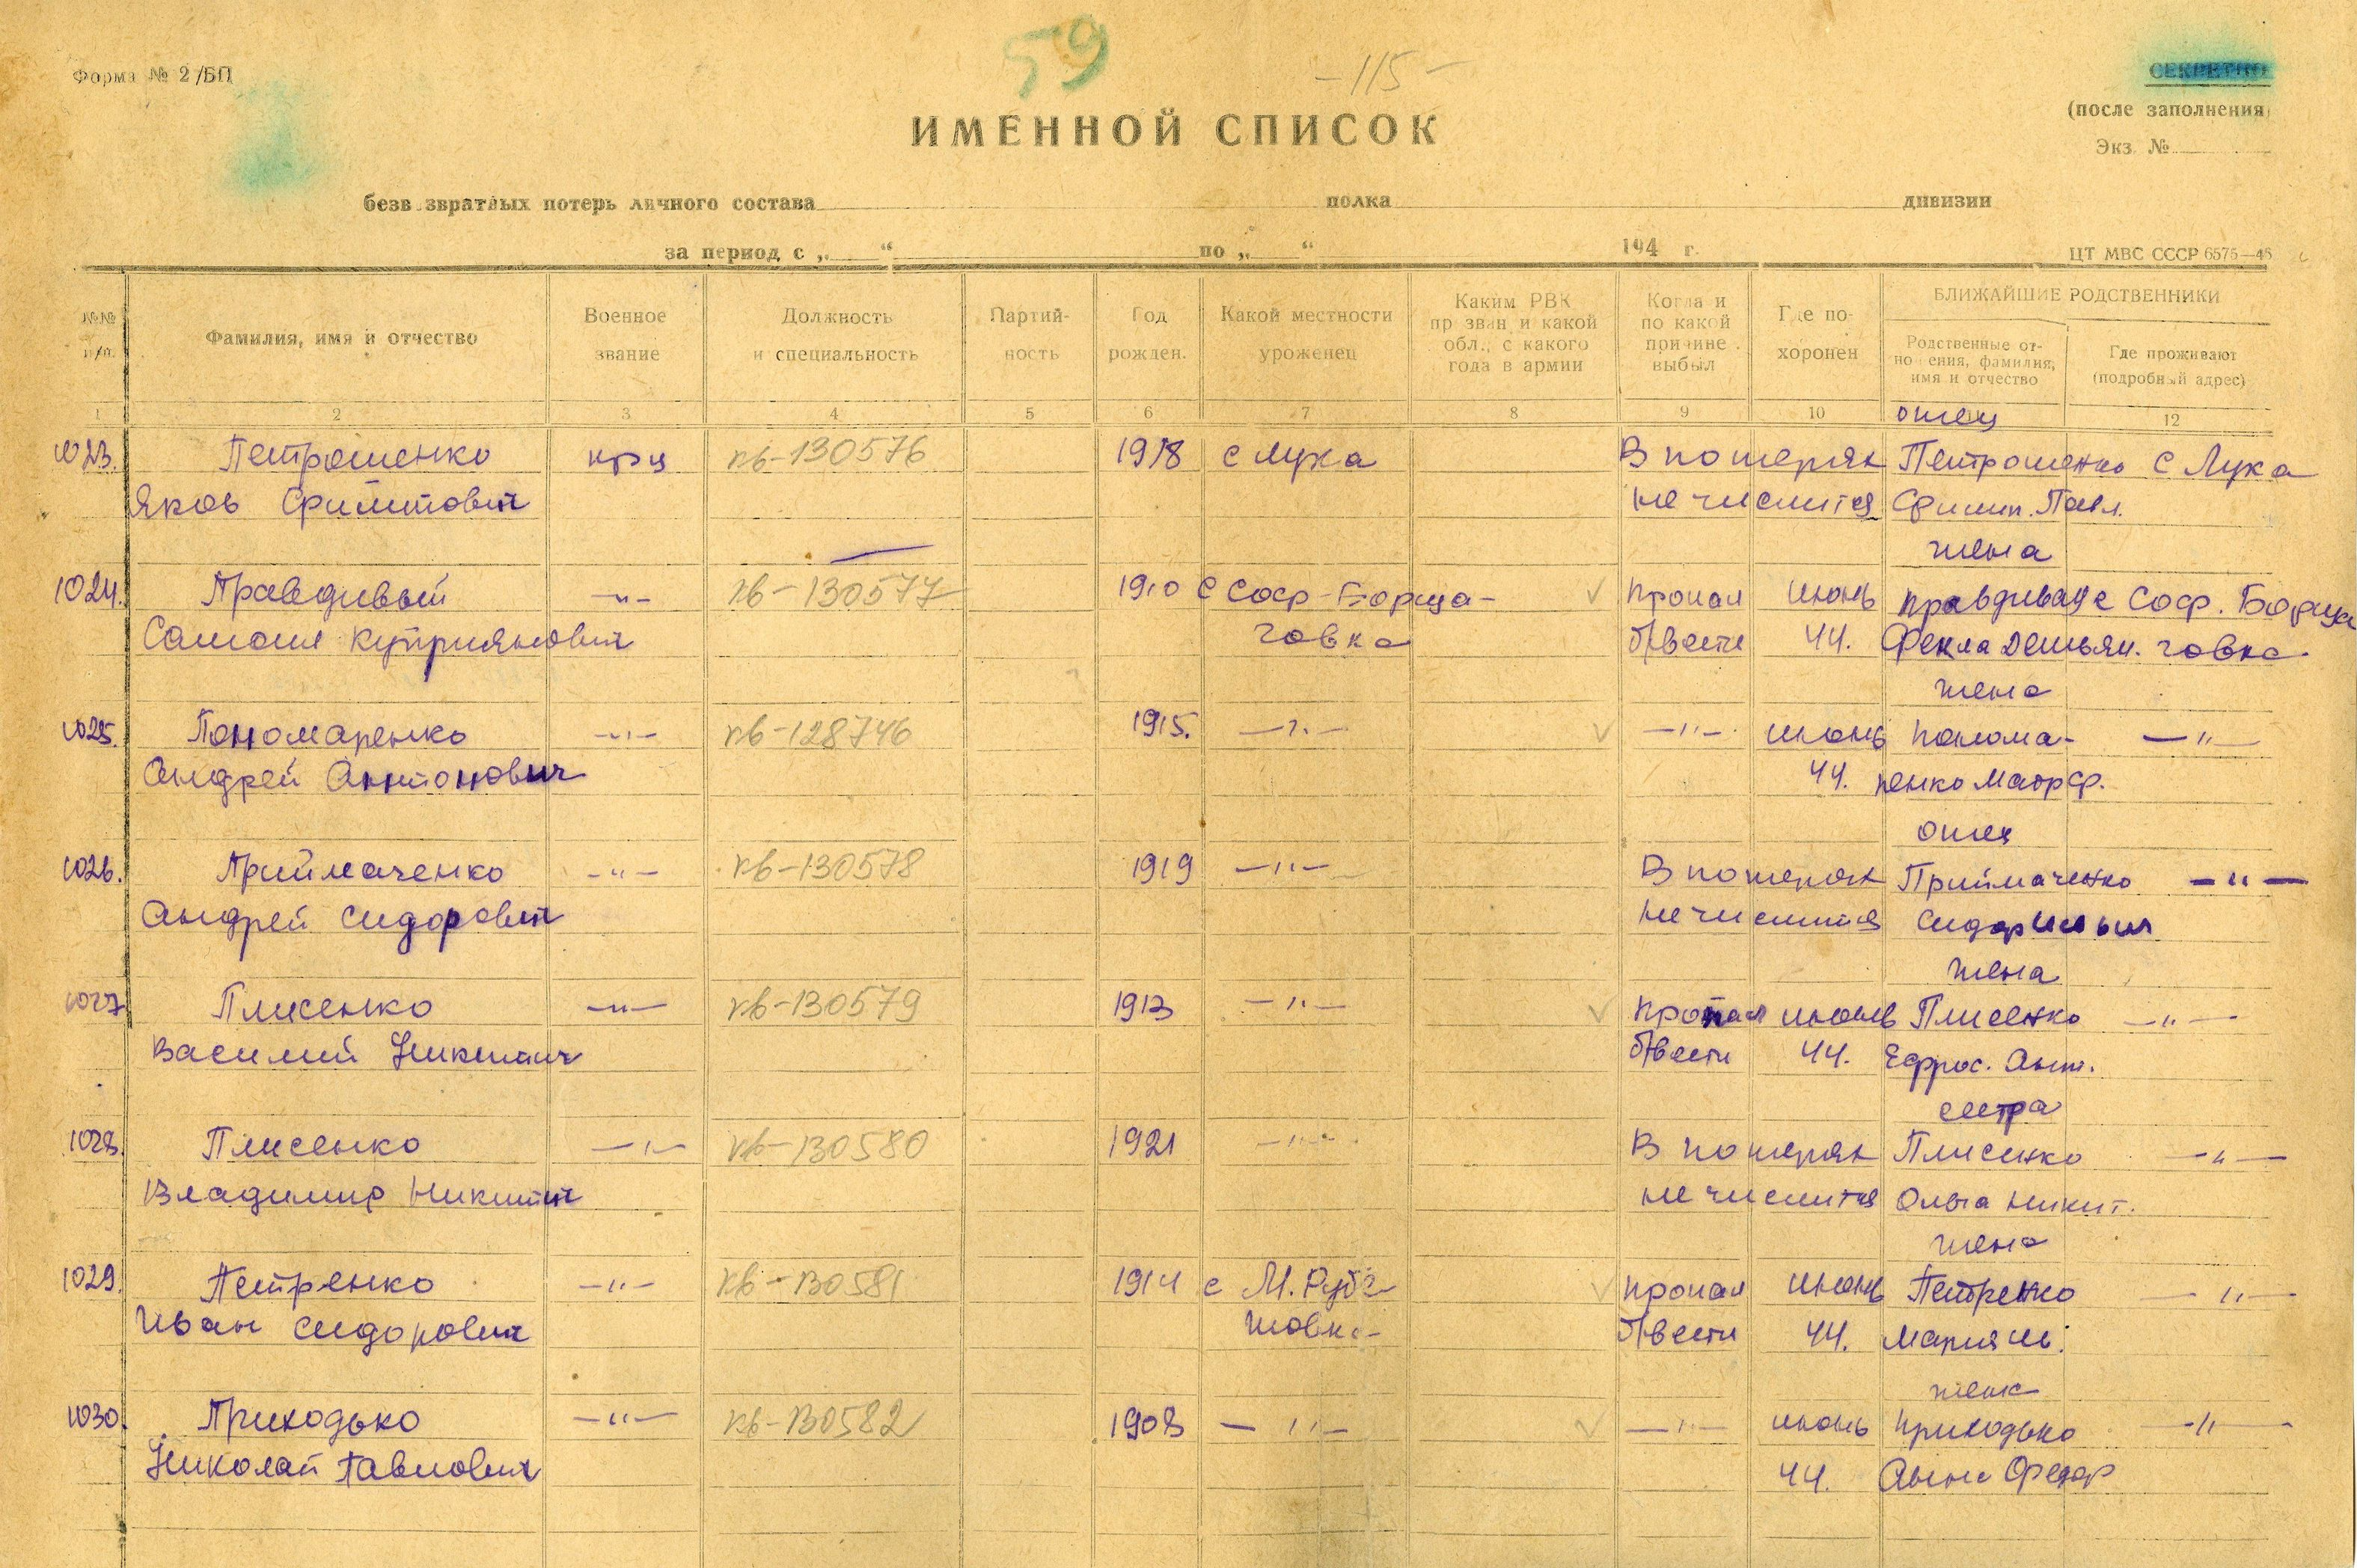 59
-115-
Форма № 2/БП
СЕКРЕТНО
(после заполнения)
Экз. №
ИМЕННОЙ СПИСОК
безвозвратных потерь личного состава полка дивизии
за период с „ “ по „ “ 194 г.
ЦТ МВС СССР 6575—46
№№ п/п.
Фамилия, имя и отчество
Военное звание
Должность и специальность
Партийность
Год рожден.
Какой местности уроженец
Каким РВК призван и какой обл., с какого года в армии
Когда и по какой причине выбыл
Где похоронен
БЛИЖАЙШИЕ РОДСТВЕННИКИ
Родственные отношения, фамилия, имя и отчество
Где проживают (подробный адрес)
1 2 3 4 5 6 7 8 9 10 12
отец
1023. Петрошенко кр-ц кв-130576 1918 с Лука В потерях Петрошенко с Лука
Яков Филиппович не числится Филип. Павл.
жена
1024. Правдивый -"- кв-130577 1910 с Соф-Борща- пропал июнь Правдивая с Соф. Борща
Самоил Куприянович говка б/вести 44. Фекла Демьян. говка.
жена
1025. Пономаренко -"- кв-128746 1915. -"- -"- июнь Понома- -"-
Андрей Антонович 44. ренко Марф.
отец
1026. Приймаченко -"- кв-130578 1919 -"- В потерях Приймаченко -"-
Андрей Сидорович не числится Сидор
жена
1027 Плисенко -"- кв-130579 1913 -"- пропал июнь Плисенко -"-
Василий Никитич б/вести 44. Ефрос. Ант.
сестра
1028. Плисенко -"- кв-130580 1921 -"- В потерях Плисенко -"-
Владимир Никитич не числится Ольга Никит.
жена
1029. Петренко -"- кв-130581 1914 с М. пропал июнь Петренко -"-
Иван Сидорович б/вести 44. Мария
жена
1030. Приходько -"- кв-130582 1908 -"- -"- июнь Приходько -"-
Николай Павлович 44. Анна Федор